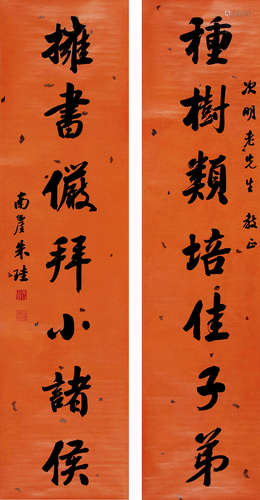 次明老先生 教正
種樹類培佳子弟
擁書儼拜小諸侯
南崖朱珪